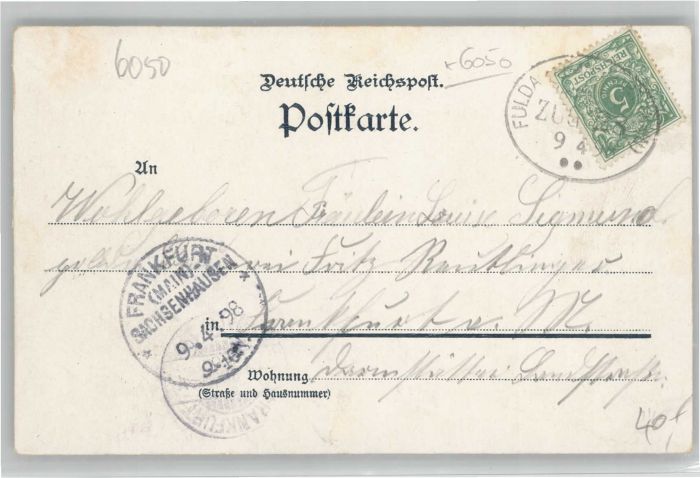 6050
+6050
Deutsche Reichspost.
Postkarte.
REICHSPOST
5
FULDA
ZUG
9 4
An
Wohlgeboren Fräulein Louise Sigmund
bei Fritz Reutlinger
in Frankfurt a. M.
Wohnung Darmstädter Landstrasse
(Straße und Hausnummer)
FRANKFURT
(MAIN)
SACHSENHAUSEN
9.4.98
FRANKFURT
40,-